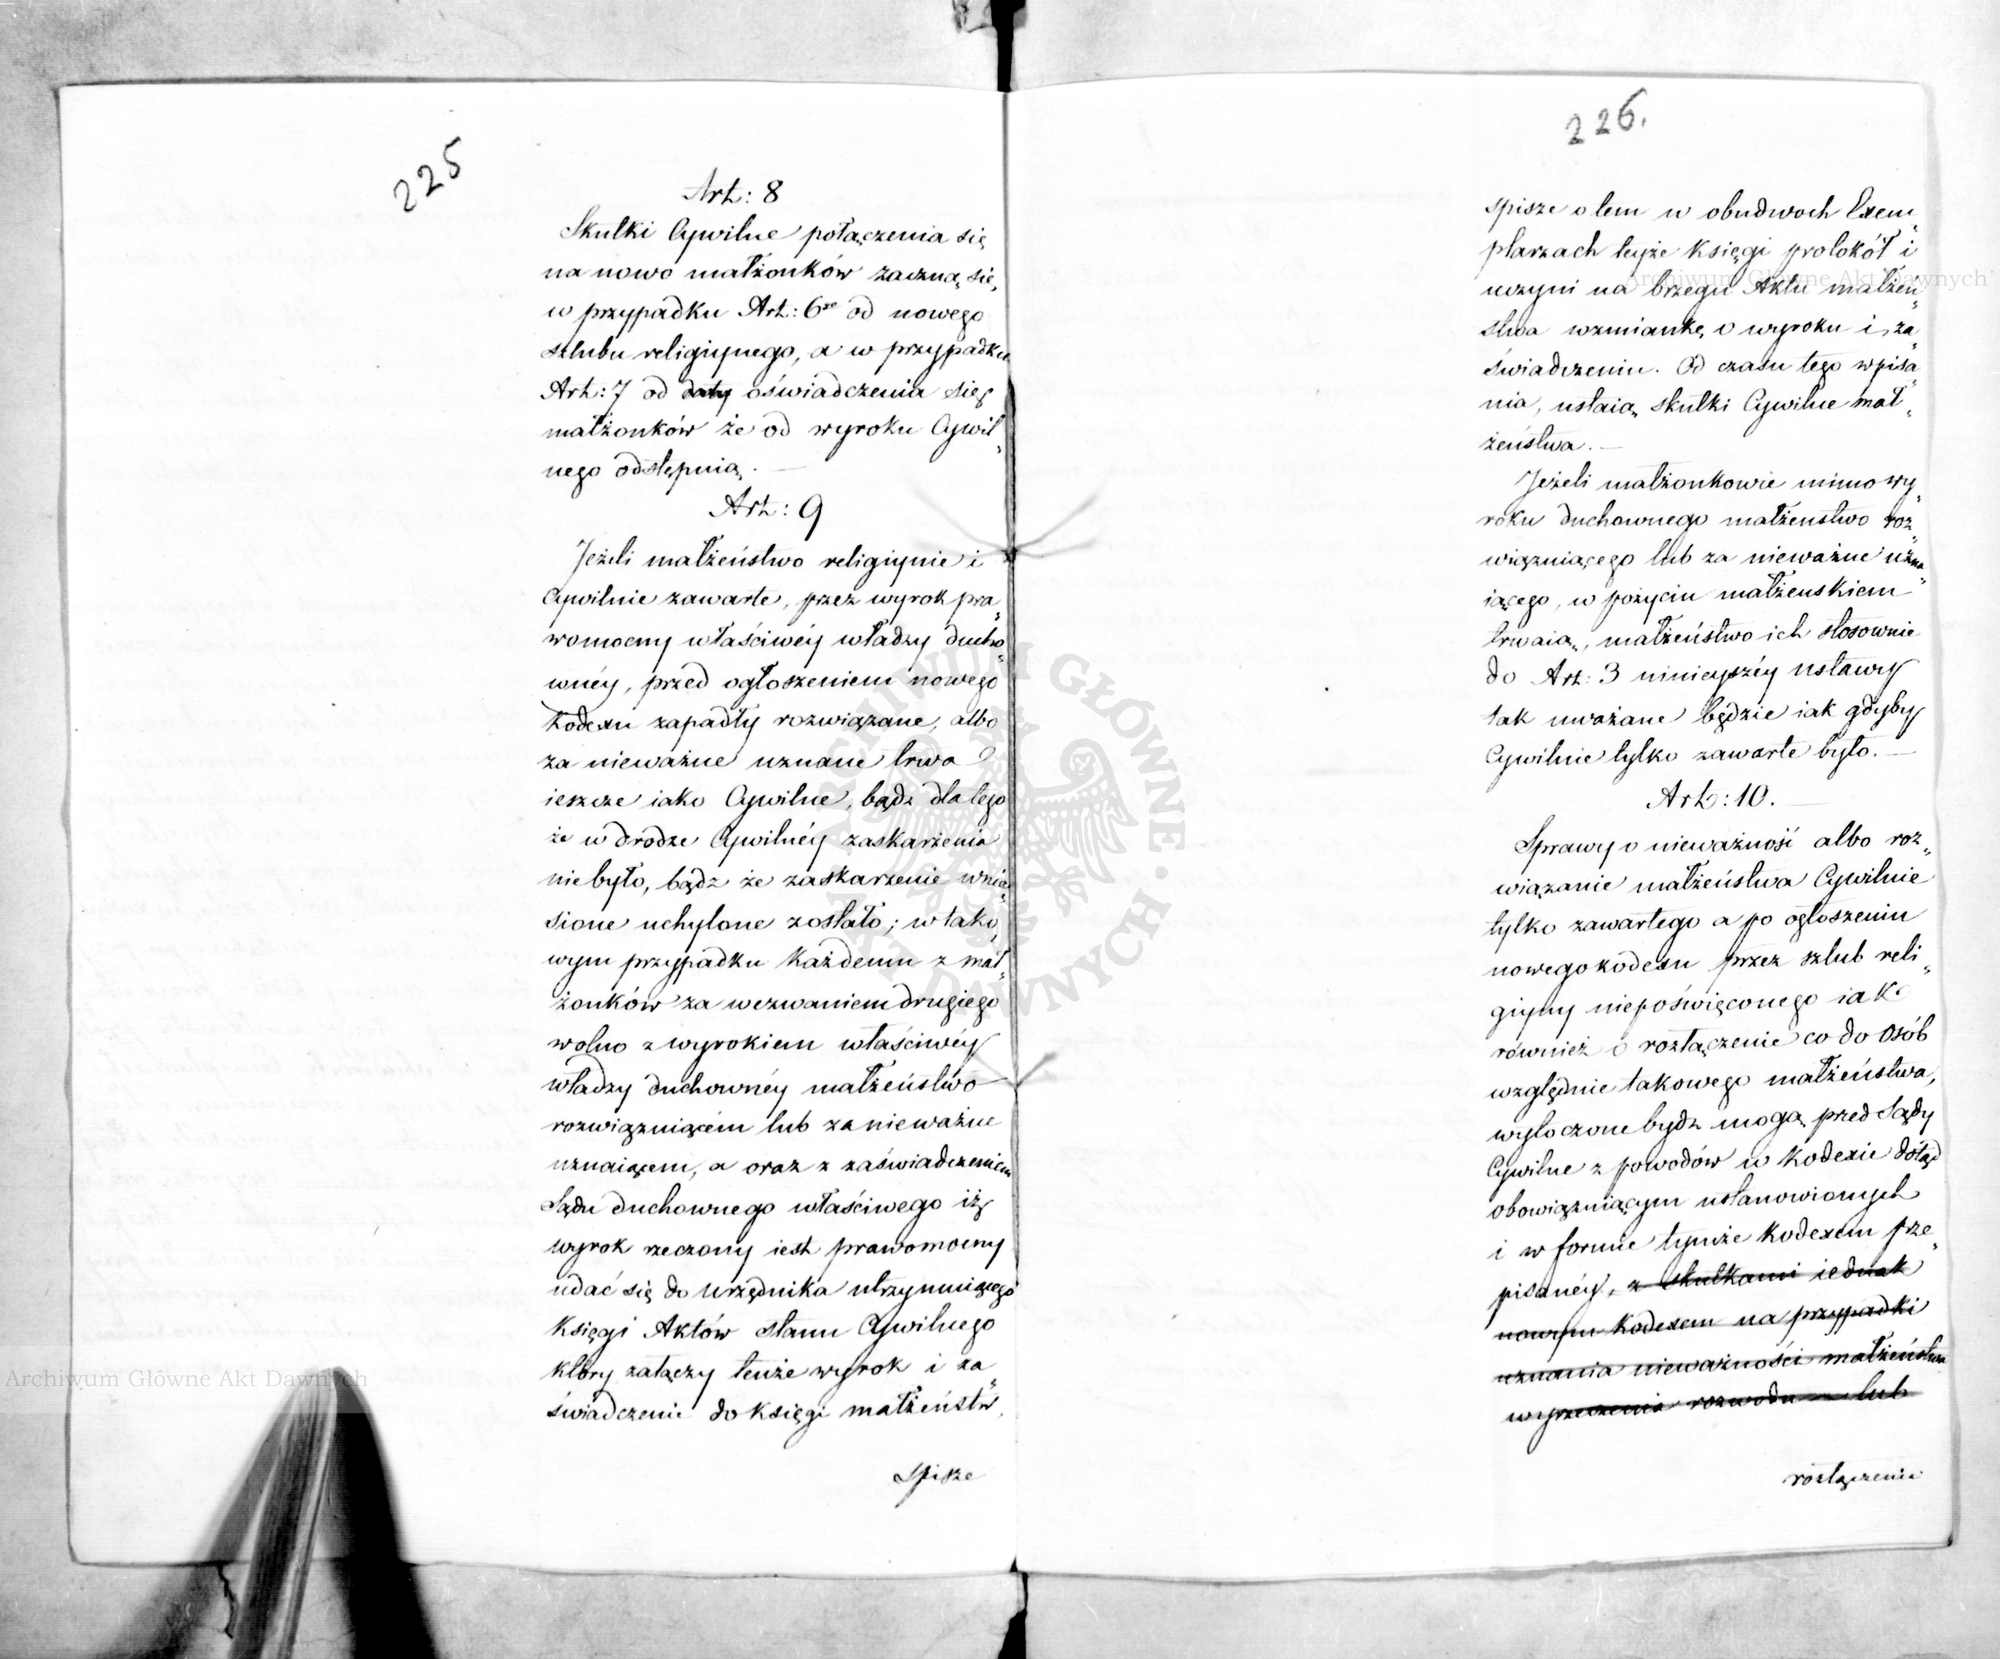 225
Art: 8
Skutki Cywilne połączenia się
na nowo małżonków zaczną się,
w przypadku Art: 6go od nowego
szlubu religiynego, a w przypadku
Art: 7 od daty oświadczenia się
małżonków że od wyroku Cywil„
nego odstępuią. —
Art: 9
Jeżeli małżeństwo religiynie i
Cywilnie zawarte, przez wyrok pra„
womocny właściwéy władzy ducho„
wnéy, przed ogłoszeniem nowego
Kodexu zapadły rozwiązane, albo
za nieważne uznane trwa
ieszcze iako Cywilne, bądz dla tego
że w drodze Cywilnéy zaskarżenia
nie było, bądz że zaskarzenie wnie„
sione uchylone zostało; w tako„
wym przypadku każdemu z mał„
żonków za wezwaniem drugiego
wolno z wyrokiem właściwéy
władzy duchownéy małżeństwo
rozwiązuiącém lub za nieważne
uznaiącem, a oraz z zaświadczeniem
Sądu duchownego właściwego iż
wyrok rzeczony iest prawomocny
udać się do Urzędnika utrzymuiącego
Księgi Aktów stanu Cywilnego
który załączy tenże wyrok i za„
świadczenie do księgi małżeństw,
spisze
226.
spisze o tem w obudwoch Exem„
plarzach teyże księgi protokół i
uczyni na brzegu Aktu małżeń„
stwa wzmiankę, o wyroku i za„
świadczeniu. Od czasu tego wpisa„
nia, ustaią skutki Cywilne mał„
żeństwa. —
Jeżeli małżonkowie mimo wy„
roku duchownego małżenstwo roz„
wiązuiącego lub za nieważne uzna„
iącego, w pożyciu małżenskiem
trwaią, małżeństwo ich stosownie
do Art: 3 ninieyszéy ustawy
tak uważane będzie iak gdyby
Cywilnie tylko zawarte było. —
Art: 10. —
Sprawy o nieważność albo roz„
wiązanie małżeństwa Cywilnie
tylko zawartego a po ogłoszeniu
nowego kodexu przez szlub reli„
giyny niepoświęconego iak
również o rozłączenie co do osób
względnie takowego małżeństwa,
wytoczone bydz mogą przed Sądy
Cywilne z powodów w kodexie dotąd
obowiązuiącym ustanowionych
i w formie tymże kodexem prze„
pisanéy, z skutkami iednak
nowym kodexem na przypadki
uznania nieważności małżeństwa
wyrzeczenia rozwodu — lub
rozłączenia
Archiwum Główne Akt Dawnych
Archiwum Główne Akt Dawnych
ARCHIWUM GŁÓWNE · AKT DAWNYCH ·